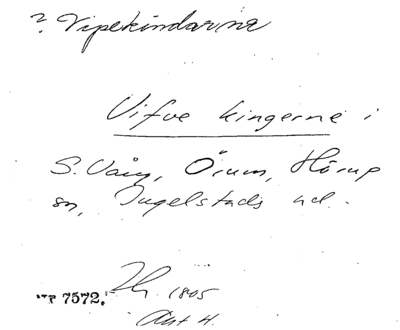 ? Vipekindarna
Vifve kingerne i
S. Våig, Örum, Hörup
sn, Ingelstads hd.
7572. 1805
Akt 4.